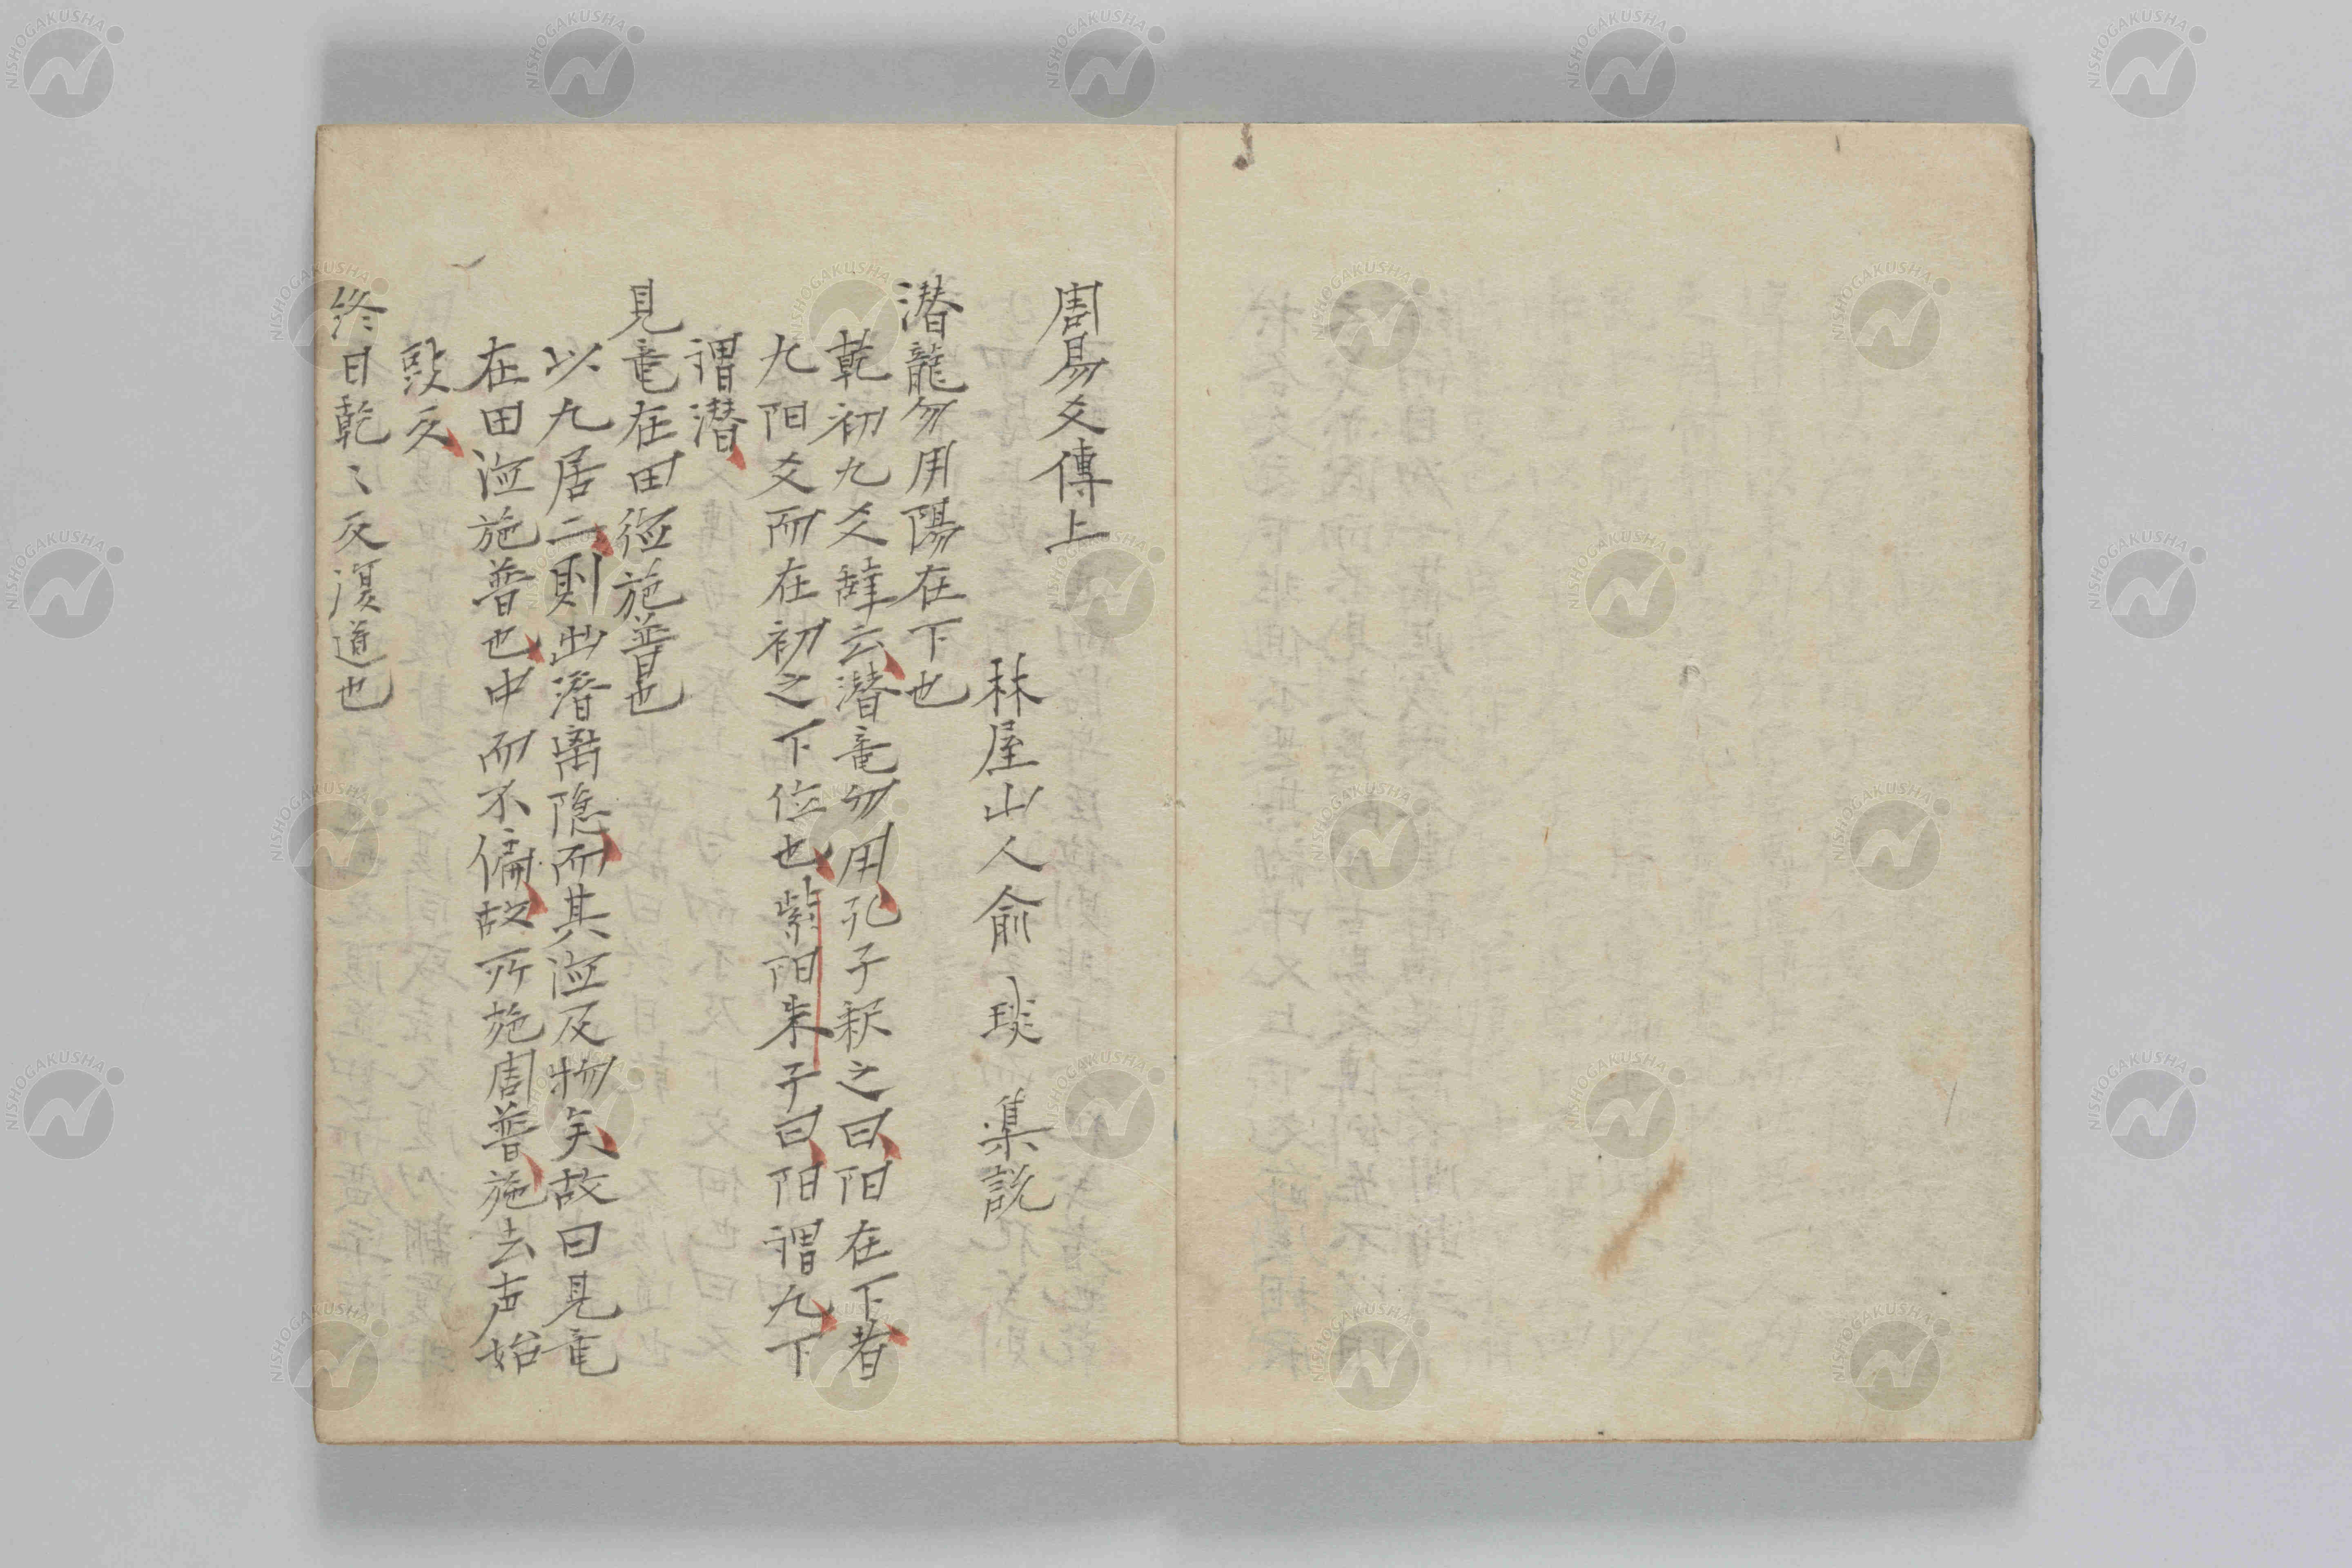 周易爻傳上
林屋山人俞琰集説
潜龍勿用陽在下也
乾初九爻辝云潜竜勿用孔子釈之曰阳在下者
九阳爻而在初之下位也紫阳朱子曰阳謂九下
謂潜
見竜在田徳施普也
以九居二則出潜离隐而其徳及物矣故曰見竜
在田徳施普也中而不偏故所施周普施去声始
豉反
終日乾〻反復道也
NISHOGAKUSHA